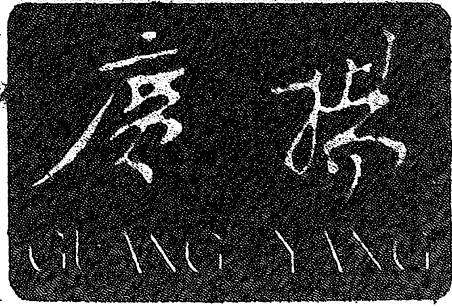 廣
GUANG YANG